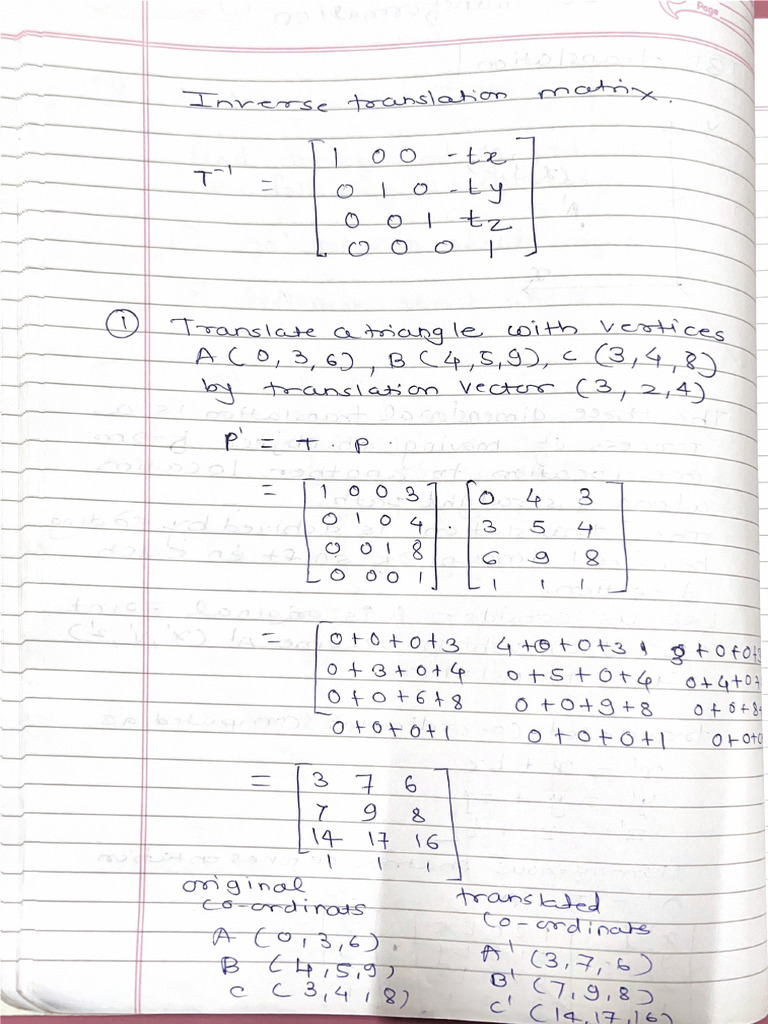 Page
Inverse translation matrix.
T⁻¹ = [ 1 0 0 -tx
0 1 0 -ty
0 0 1 tz
0 0 0 1 ]
① Translate a triangle with vertices
A ( 0, 3, 6) , B ( 4,5,9), C (3, 4, 8)
by translation vector (3, 2,4)
P' = T . P .
= [ 1 0 0 3 ] . [ 0 4 3 ]
0 1 0 4 3 5 4
0 0 1 8 6 9 8
0 0 0 1 1 1 1
= [ 0+0+0+3 4+0+0+3 3+0+0+3
0+3+0+4 0+5+0+4 0+4+0+
0+0+6+8 0+0+9+8 0+0+8+
0+0+0+1 0+0+0+1 0+0+0
= [ 3 7 6
7 9 8
14 17 16
1 1 1 ]
original translated
co-ordinats co-ordinats
A (0,3,6). A' (3,7,6)
B (4,5,9) B' (7,9,8)
C (3,4,8) C' (14,17,16)